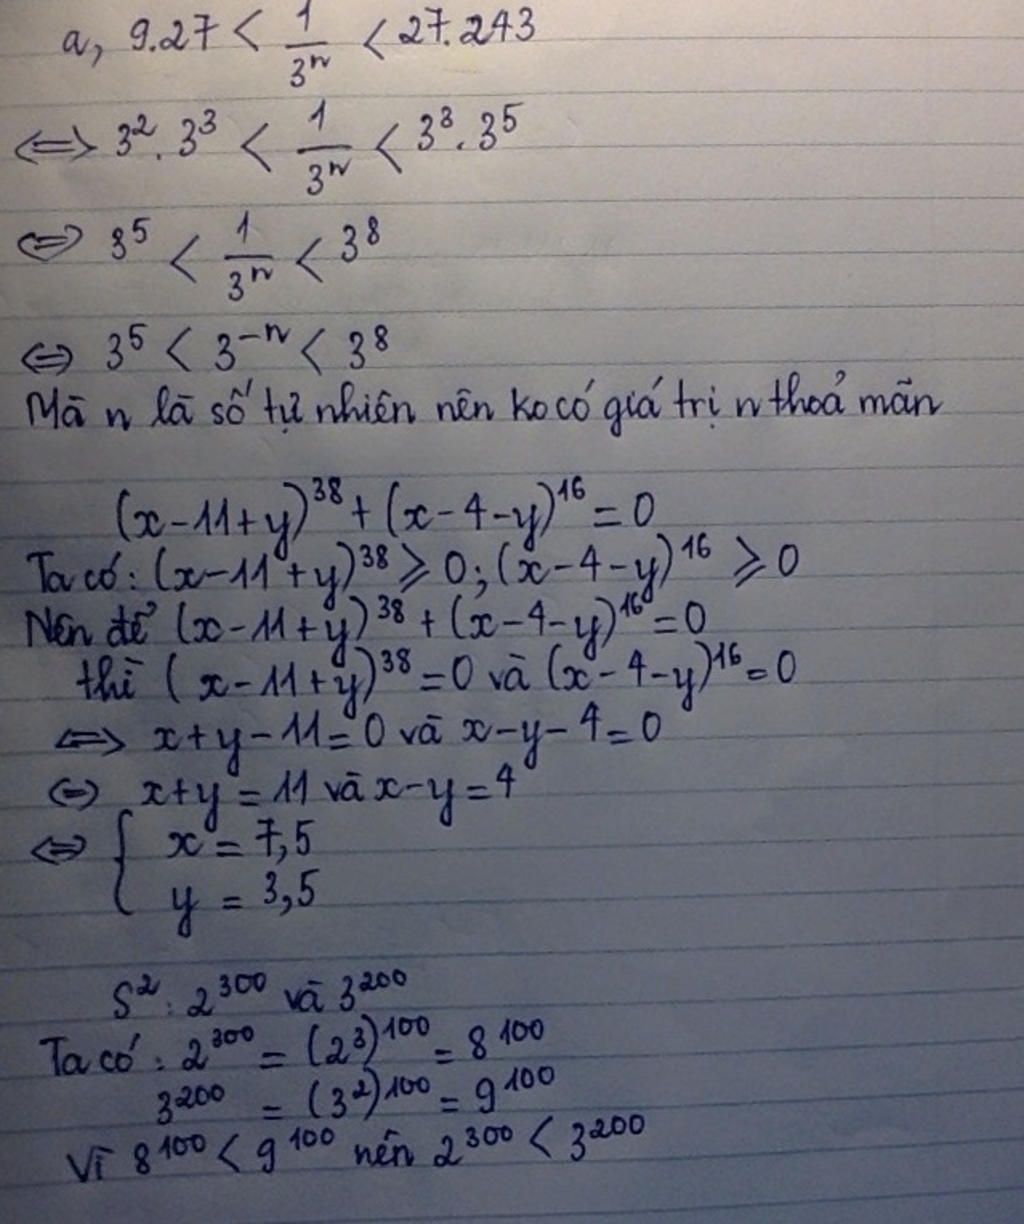 a, 9.27 < 1/3ⁿ < 27.243
⇔ 3². 3³ < 1/3ⁿ < 3³. 3⁵
⇔ 3⁵ < 1/3ⁿ < 3⁸
⇔ 3⁵ < 3⁻ⁿ < 3⁸
Mà n là số tự nhiên nên ko có giá trị n thoả mãn
(x-11+y)³⁸ + (x-4-y)¹⁶ = 0
Ta có: (x-11+y)³⁸ ⩾ 0; (x-4-y)¹⁶ ⩾ 0
Nên để (x-11+y)³⁸ + (x-4-y)¹⁶ = 0
thì (x-11+y)³⁸ = 0 và (x-4-y)¹⁶ = 0
⇔ x+y-11=0 và x-y-4=0
⇔ x+y=11 và x-y=4
⇔ { x = 7,5
y = 3,5
S²: 2³⁰⁰ và 3²⁰⁰
Ta có: 2³⁰⁰ = (2³)¹⁰⁰ = 8¹⁰⁰
3²⁰⁰ = (3²)¹⁰⁰ = 9¹⁰⁰
Vì 8¹⁰⁰ < 9¹⁰⁰ nên 2³⁰⁰ < 3²⁰⁰